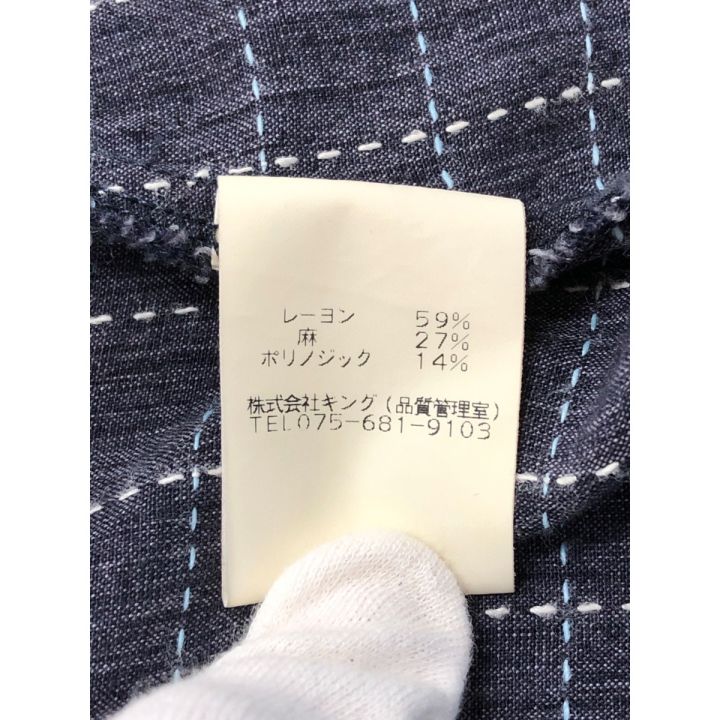 レーヨン 59%
麻 27%
ポリノジック 14%
株式会社キング(品質管理室)
TEL075-681-9103